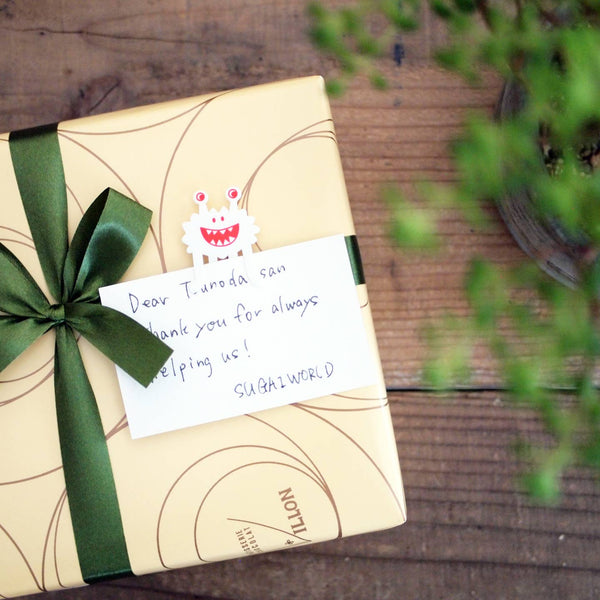 Dear T-unoda san
thank you for always
helping us!
SUGAIWORLD
ILLON